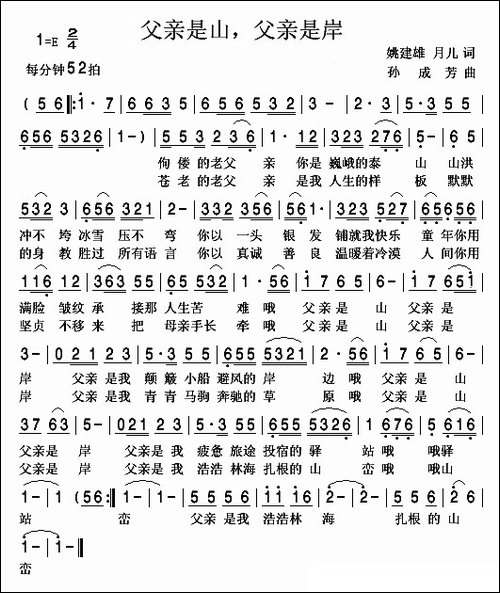 父亲是山，父亲是岸
1=E 2/4
姚建雄 月儿 词
每分钟52拍
孙 成 芳 曲
(5 6 |: 1 · 7 | 6 6 3 5 | 6 5 6 5 3 2 | 1 2 3 · | 2 2 · | 5 · 3 5 5 |
6 5 6 5 3 2 6 | 1 -) | 5 5 3 2 3 6 | 3 2 3 2 7 6 | 5 - | 6 5 |
佝 偻 的老父 亲 你是 巍峨的泰 山 山洪
苍 老 的老父 亲 是我 人生的样 板 默默
5 3 2 3 | 6 5 6 3 2 1 | 2 - | 3 3 2 3 5 6 | 5 6 1 | 3 2 3 2 7 6 | 6 5 6 6 5 6 |
冲不 垮 冰雪 压不 弯 你以 一头 银 发 铺就我快乐 童 年你用
的身 教 胜过 所有语言 你以 真诚 善 良 温暖着冷漠 人 间你用
1 1 6 1 2 | 3 6 3 5 5 | 6 5 5 3 2 | 1 2 3 | 5 6 · | 1 7 6 5 | 6 - | 1 7 6 5 1 |
满脸 皱纹 承 接那 人生苦 难哦 父亲 是 山 父亲 是
坚贞 不移 来 把 母亲手长 牵哦 父亲 是 山 父亲 是
3 - | 0 2 1 2 3 | 5 · 3 5 5 | 6 5 5 5 3 2 1 | 5 6 · | 1 7 6 5 | 6 - |
岸 父亲 是我 颠 簸 小船 避风的 岸 边 哦 父亲 是 山
岸 父亲 是我 青 青 马驹 奔驰的 草 原 哦 父亲 是 山
3 7 6 3 | 5 - | 0 2 1 2 3 | 5 · 3 5 5 | 6 5 5 5 3 2 6 | 1 6 7 6 | 5 6 7 6 |
父亲 是 岸 父亲 是 我 疲惫 旅途 投宿的 驿 站 哦 哦驿
父亲 是 岸 父亲 是 我 浩浩 林海 扎根的 山 峦 哦 哦山
1 - | 1 - | (5 6 :| 1 - | 1 - | 0 2 1 2 3 | 5 · 5 5 5 | 1 1 1 6 | 2 - | 2 6 |
站 峦 父亲 是我 浩浩林 海 扎根 的 山
1 - | 1 - ||
峦